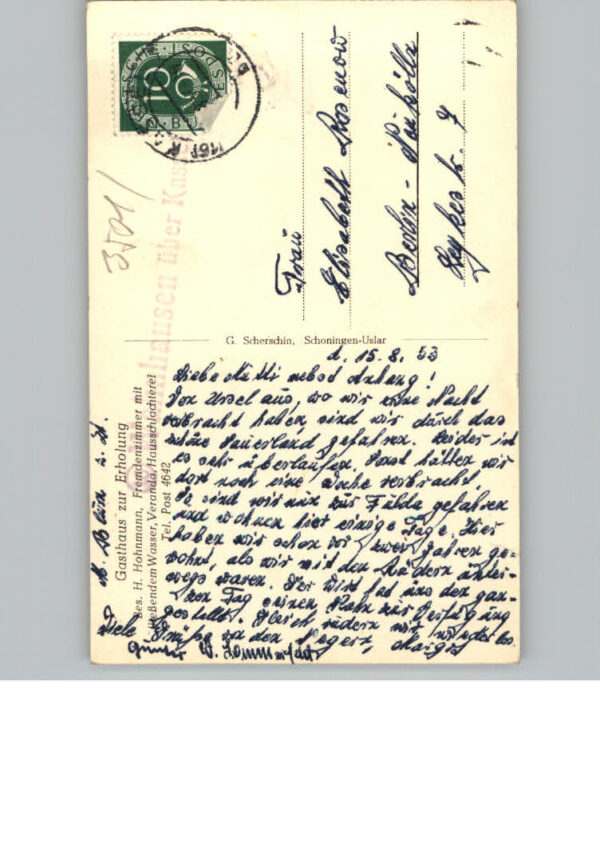 10
3501/
Frau
Elisabeth Rosenow
Berlin-Neukölln
G. Scherschin, Schoningen-Uslar
d. 15.8.53
Liebe Mutti nebst Anhang!
Von Ursel aus, wo wir eine Nacht
verbracht haben, sind wir durch das
schöne Sauerland gefahren. Leider ist
es sehr überlaufen. Sonst hätten wir
dort noch eine Woche verbracht.
So sind wir nun zur Fulda gefahren
und wohnen hier einige Tage. Hier
haben wir schon vor zwei Jahren ge-
wohnt, als wir mit den Rädern unter-
wegs waren. Der Wirt hat uns den gan-
zen Tag einen Kahn zur Verfügung
gestellt. Gleich rudern wir wieder los.
Viele Grüße an den
Günter
Gasthaus zur Erholung
Bes. H. Hohnmann, Fremdenzimmer mit
fließendem Wasser, Veranda, Hausschlachterei
Tel. Post 4642
hausen über Kas